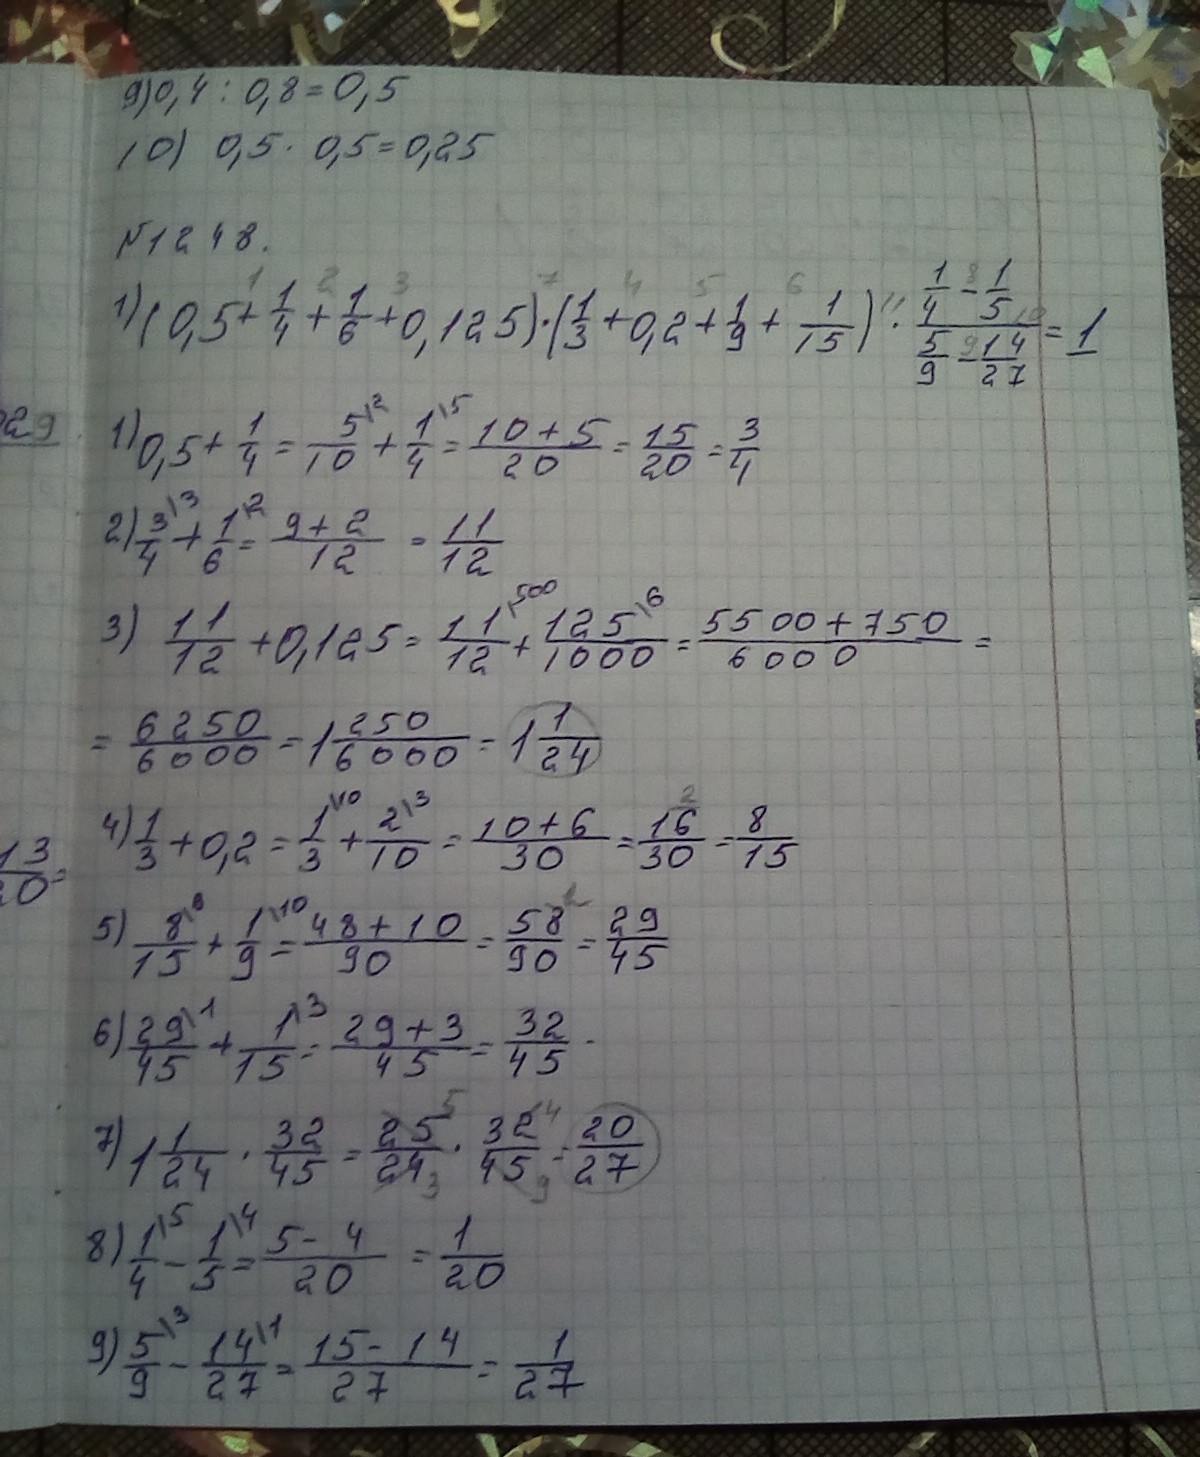 9) 0,4 : 0,8 = 0,5
10) 0,5 · 0,5 = 0,25
№1248.
1) (0,5 + 1/4 + 1/6 + 0,125) · (1/3 + 0,2 + 1/9 + 1/15) · (1/4 - 1/5)/(5/9 - 14/27) = 1
1) 0,5 + 1/4 = 5/10\2 + 1/4\5 = (10 + 5)/20 = 15/20 = 3/4
2) 3/4\3 + 1/6\2 = (9 + 2)/12 = 11/12
3) 11/12 + 0,125 = 11/12\500 + 125/1000\6 = (5500 + 750)/6000 =
= 6250/6000 = 1 250/6000 = 1 1/24
4) 1/3 + 0,2 = 1/3\10 + 2/10\3 = (10 + 6)/30 = 16/30 = 8/15
5) 8/15\6 + 1/9\10 = (48 + 10)/90 = 58/90 = 29/45
6) 29/45\1 + 1/15\3 = (29 + 3)/45 = 32/45
7) 1 1/24 · 32/45 = 25/24 · 32/45 = 20/27
8) 1/4\5 - 1/5\4 = (5 - 4)/20 = 1/20
9) 5/9\3 - 14/27\1 = (15 - 14)/27 = 1/27
29
13/20 =